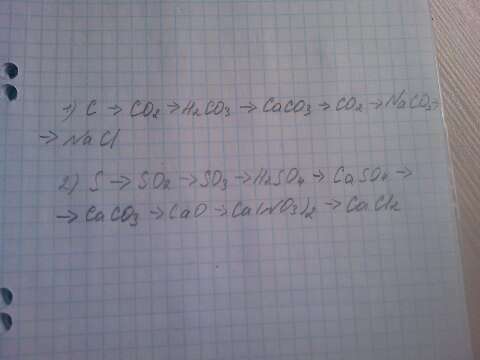 1) C → CO₂ → H₂CO₃ → CaCO₃ → CO₂ → NaCO₃ →
→ NaCl
2) S → SO₂ → SO₃ → H₂SO₄ → CaSO₄ →
→ CaCO₃ → CaO → Ca(NO₃)₂ → CaCl₂